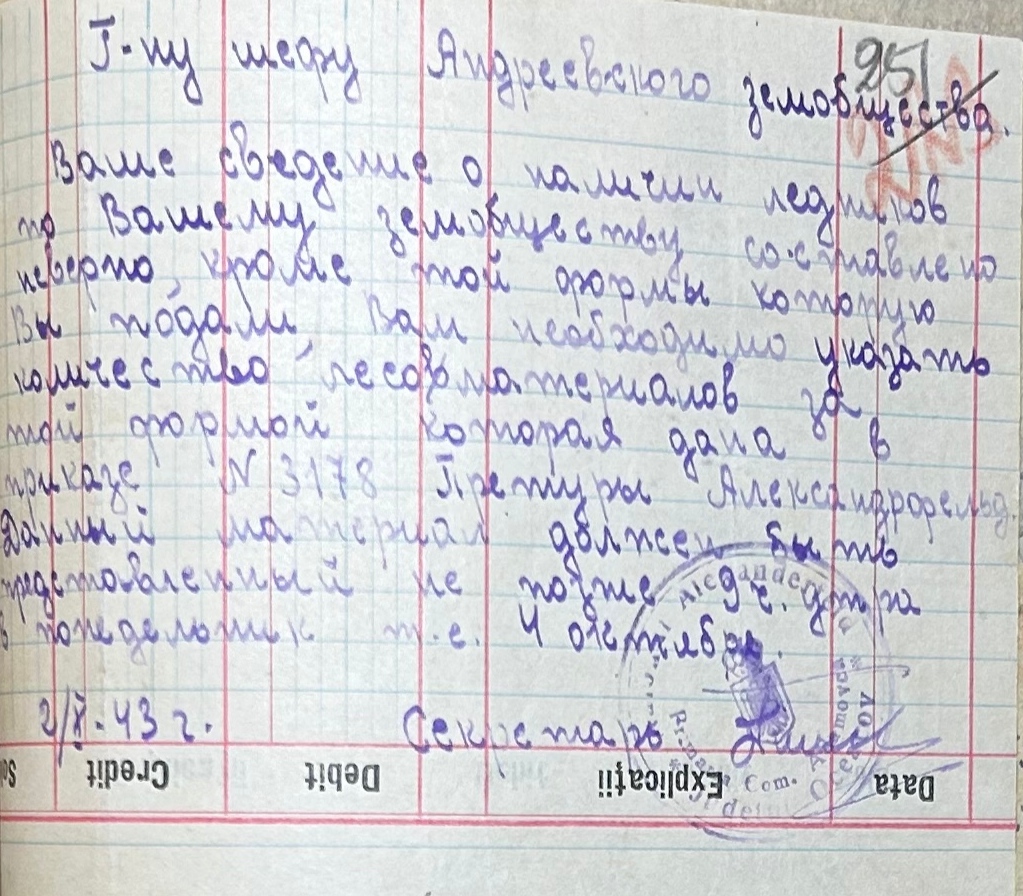 251
Г-ну шефу Андреевского земобщества.
Ваше сведение о наличии ледников
по Вашему земобществу составлено
неверно, кроме той формы которую
Вы подали, Вам необходимо указать
количество лесоматериалов за
той формой которая дана в
приказе N 3178 Претуры Александрфельд.
Данный материал должен быть
представленный не позже 9 ч. утра
в понедельник т.е. 4 октября.
2/X-43 г. Секретарь
Credit Debit Explicaţii Data
Com.